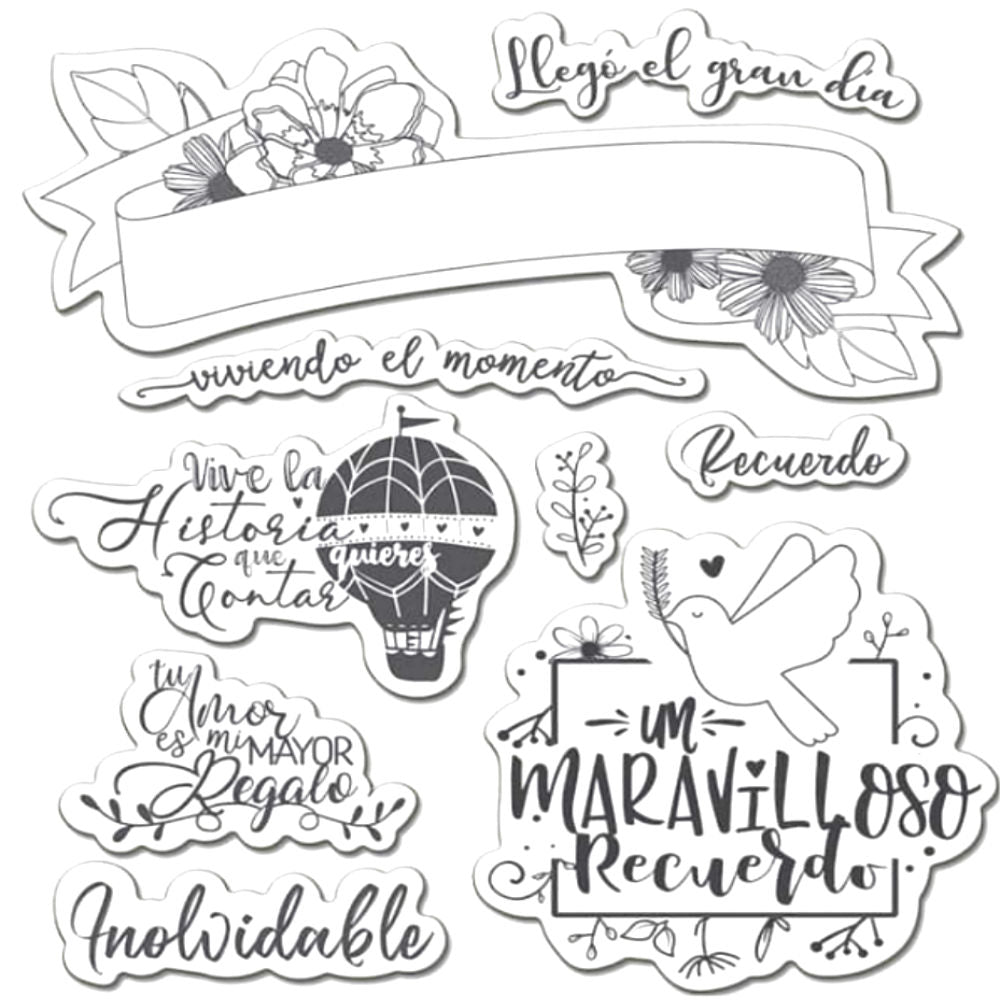 Llegó el gran día
viviendo el momento
Vive la
Historia
que quieres
Contar
Recuerdo
tu
Amor
es mi MAYOR
Regalo
Inolvidable
un
MARAVILLOSO
Recuerdo